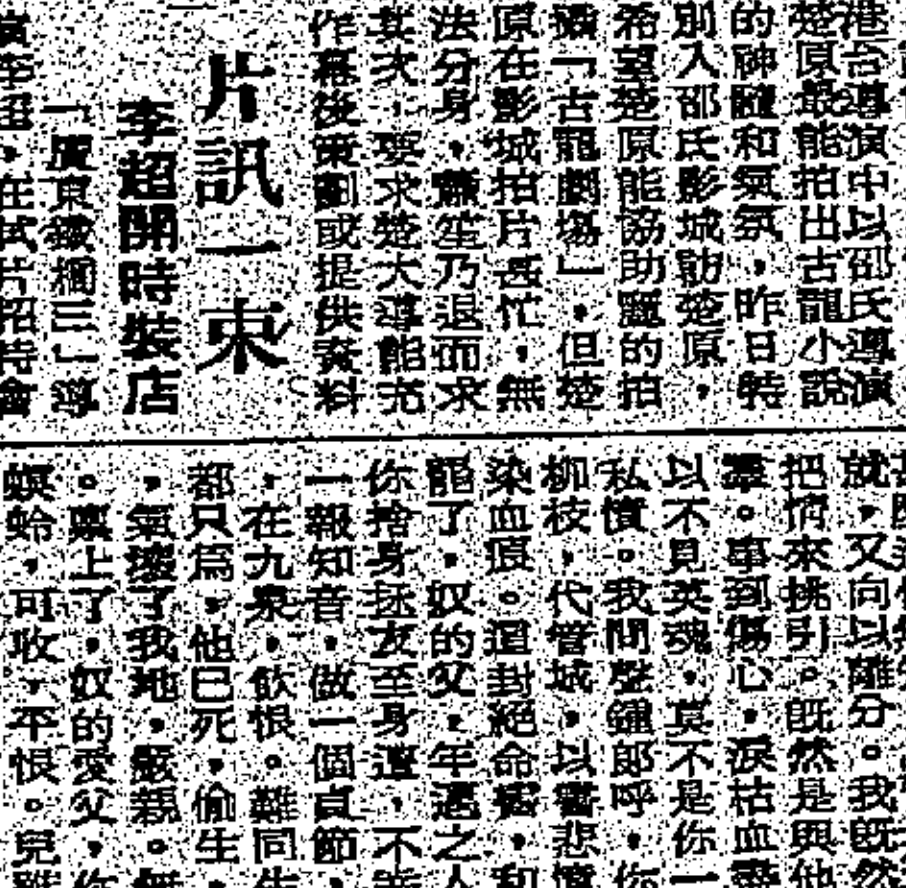 港台導演中以邵氏導演
楚原最能拍出古龍小說
的神髓和氣氛，昨日特
別入邵氏影城訪楚原，
希望楚原能協助麗的拍
攝「古龍劇場」，但楚
原在影城拍片甚忙，無
法分身，蕭笙乃退而求
其次，要求楚大導能充
作幕後策劃或提供資料
片訊一束
李超開時裝店
「廣東鐵橋三」導
李超，在試片招待會
就，又向以離分。我既然
把情來挑引。既然是與他
事到傷心，淚枯血盡
以不見英魂，莫不是你一
私憤。我問聲鍾郎呼，你
柳枝，代管城，以書悲憤
染血痕。還封絕命書，和
龍了，奴的父，年邁之人
你捨身拯友至身遭，不
一報知音，做一個貞節，
，在九泉，飲恨。難同生
都只為，他已死，偷生，
，氣壞了我地，嚴親。無
。稟上了，奴的愛父，你
螟蛉，可收，不恨。兒雖